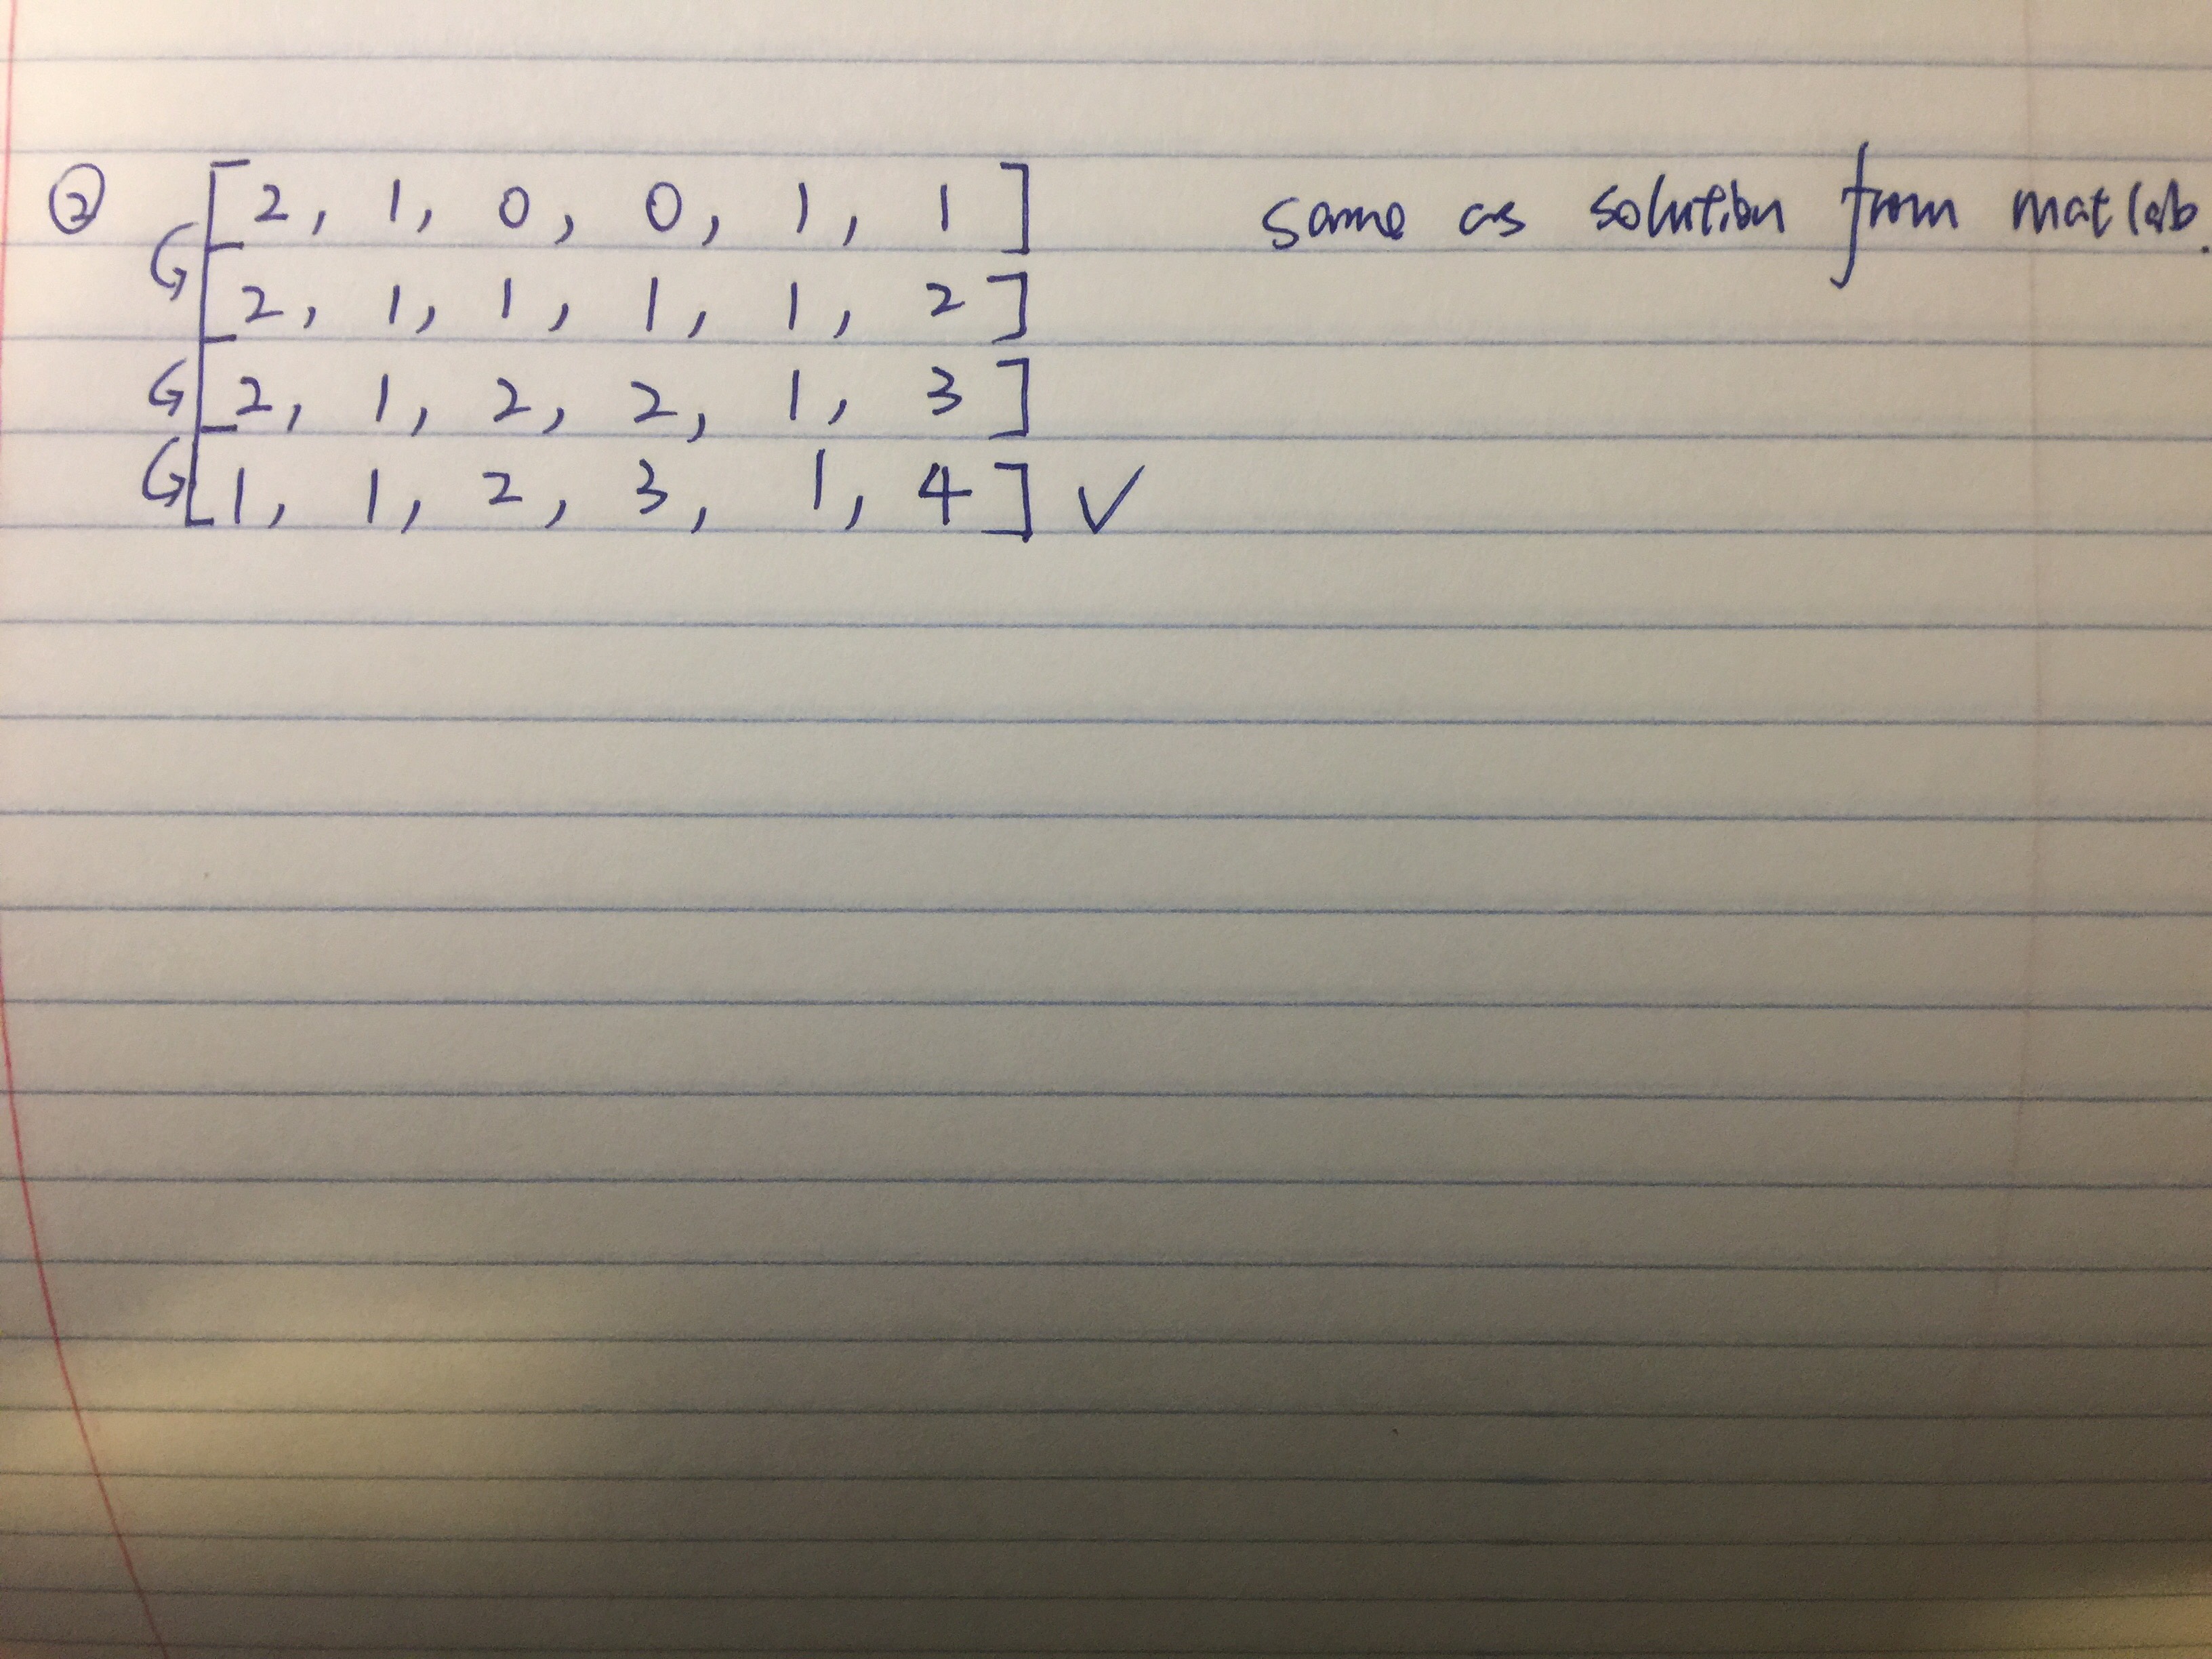 ② [2, 1, 0, 0, 1, 1] same as solution from matlab.
[2, 1, 1, 1, 1, 2]
[2, 1, 2, 2, 1, 3]
[1, 1, 2, 3, 1, 4] ✓